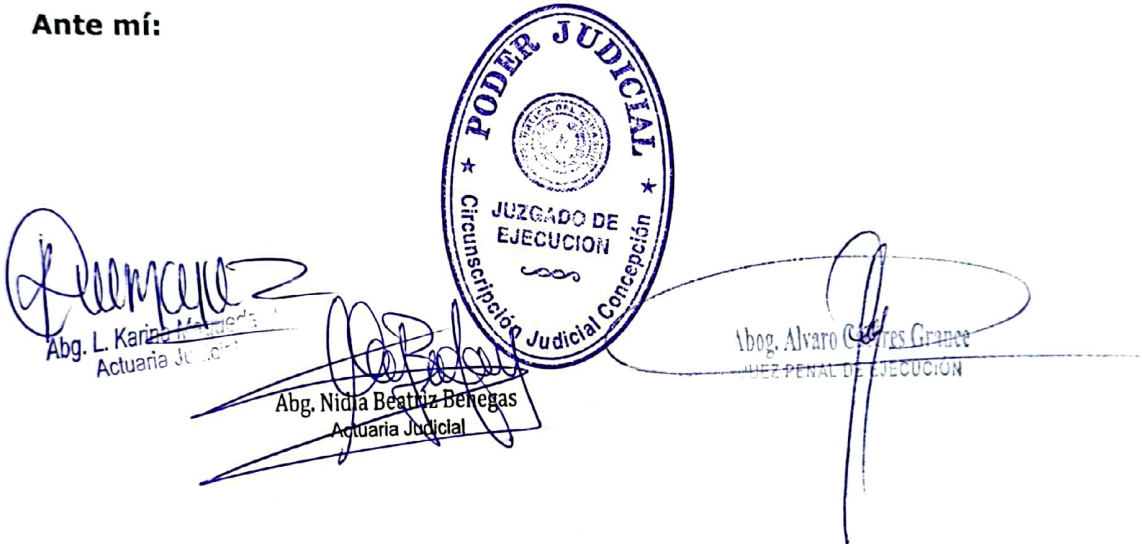 Ante mí:
PODER JUDICIAL
JUZGADO DE
EJECUCION
Circunscripción Judicial Concepción
Abg. L. Karina
Actuaria
Abg. Nidia Beatriz Benegas
Actuaria Judicial
Abog. Alvaro Grance
JUEZ PENAL DE EJECUCION